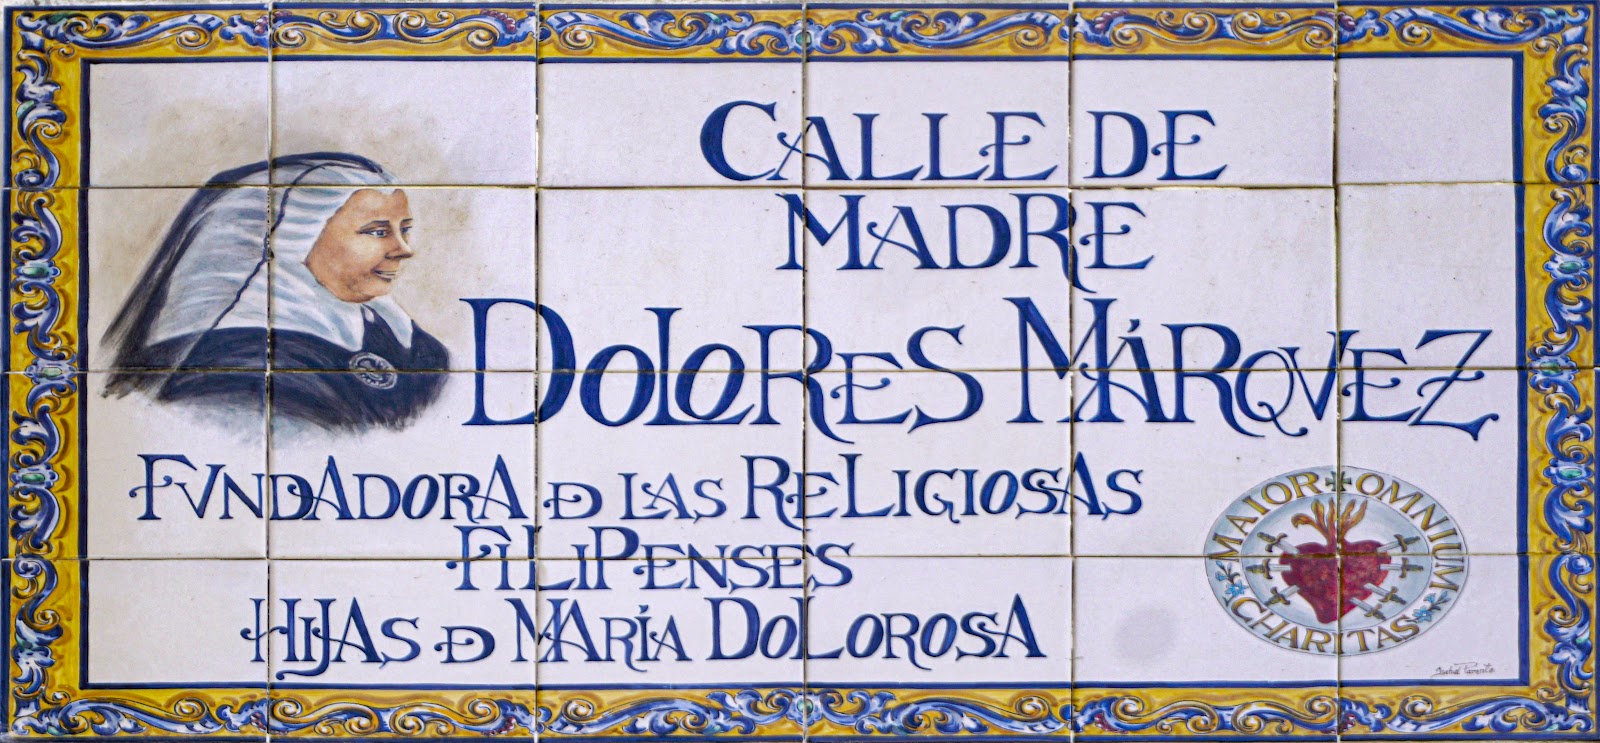 CALLE DE
MADRE
DOLORES MÁRQVEZ
FVNDADORA D LAS RELIGIOSAS
FILIPENSES
HIJAS D MARÍA DOLOROSA
MAIOR OMNIUM
CHARITAS